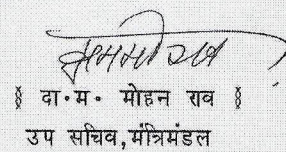 ( दा॰म॰ मोहन राव )
उप सचिव,मंत्रिमंडल